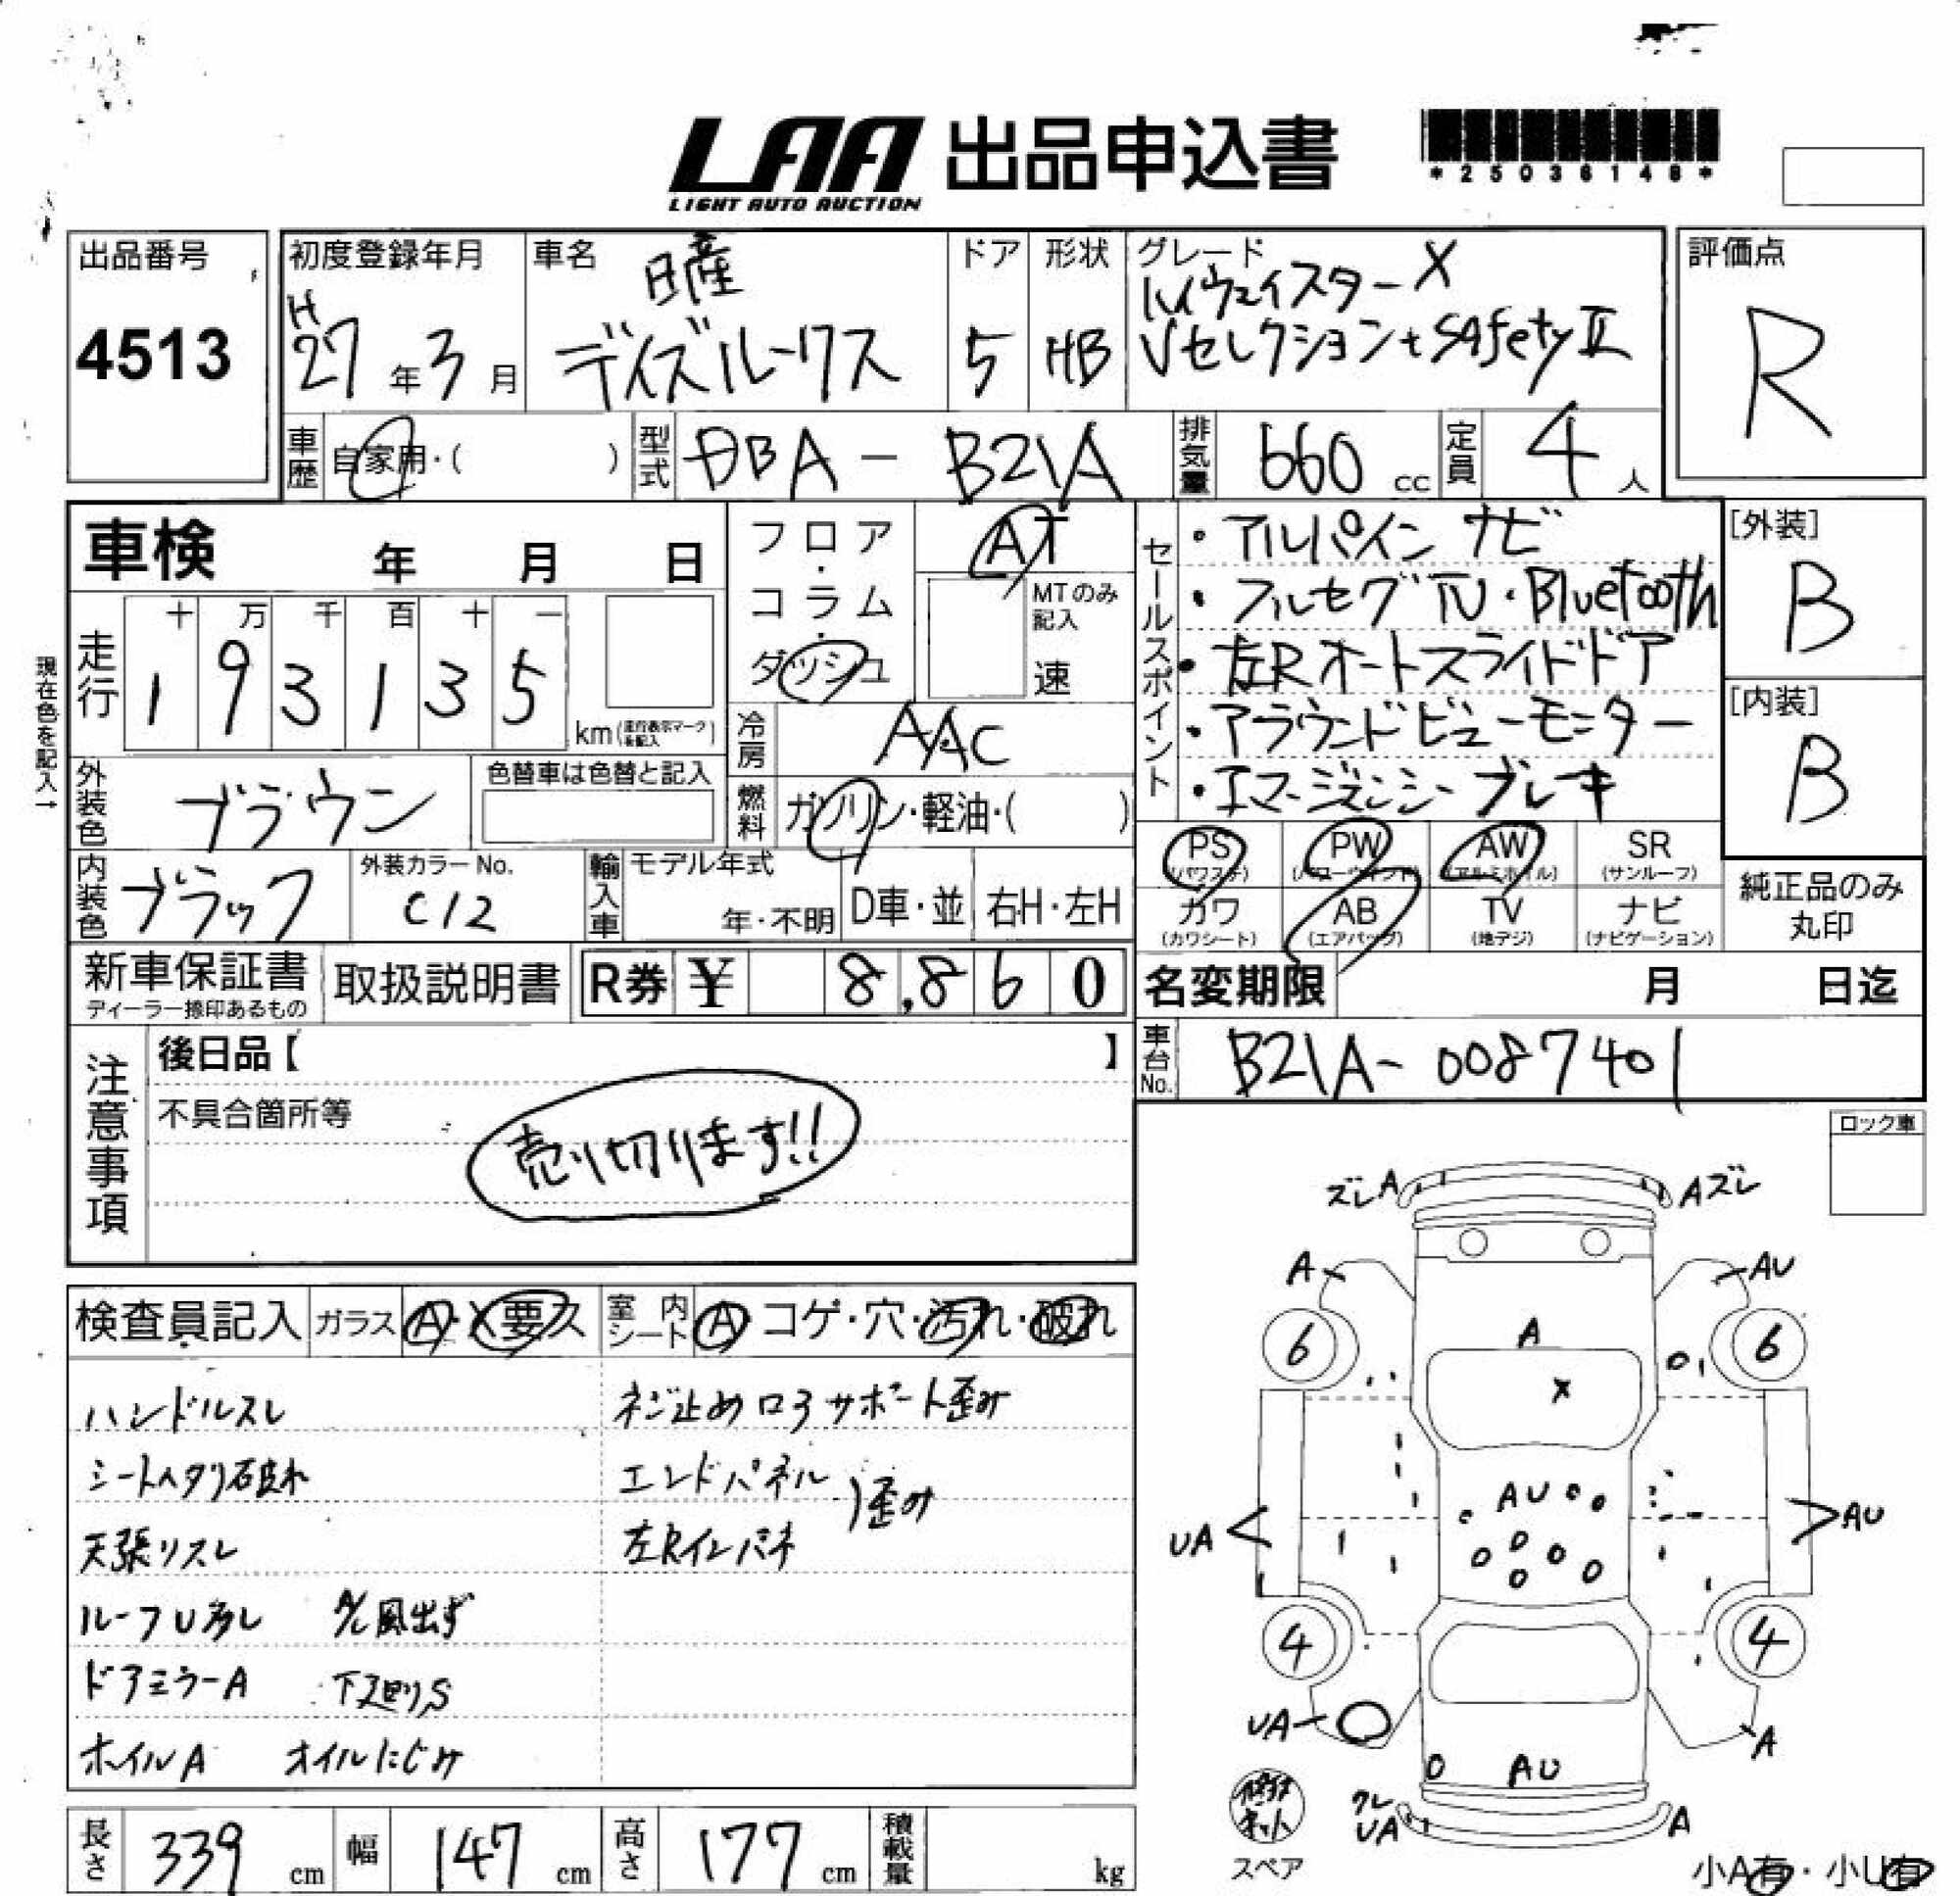 LAA 出品申込書
LIGHT AUTO AUCTION
*25036148*
出品番号
4513
初度登録年月
H27年3月
車名
日産
デイズルークス
ドア
5
形状
HB
グレード
ハイウェイスターX
Vセレクション+SafetyⅡ
評価点
R
車歴
自家用・( )
型式
DBA - B21A
排気量
660 cc
定員
4人
車検 年 月 日
フロア・コラム・ダッシュ
AT
MTのみ記入
速
現在色を記入→
走行
十 万 千 百 十 一
1 9 3 1 3 5
km(走行表示マークを記入)
冷房
AAC
外装色
ブラウン
色替車は色替と記入
燃料
ガソリン・軽油・( )
内装色
ブラック
外装カラーNo.
C12
輸入車
モデル年式
年・不明
D車・並
右H・左H
セールスポイント
・アルパイン ナビ
・フルセグTV・Bluetooth
・左Rオートスライドドア
・アラウンドビューモニター
・エマージェンシーブレーキ
[外装]
B
[内装]
B
PS
(パワステ)
PW
(パワーウィンド)
AW
(アルミホイル)
SR
(サンルーフ)
カワ
(カワシート)
AB
(エアバッグ)
TV
(地デジ)
ナビ
(ナビゲーション)
純正品のみ
丸印
新車保証書
ディーラー捺印あるもの
取扱説明書
R券 ¥ 8,860
名変期限 月 日迄
車台No.
B21A-0087401
注意事項
後日品【 】
不具合箇所等
売り切ります!!
ロック車
検査員記入
ガラス
A・X要ス
室内シート
A・コゲ・穴・汚れ・破れ
ハンドルスレ
ネジ止めロアサポート歪み
シートヘタリ破れ
エンドパネル
左Rインパネ
歪み
天張リスレ
ルーフU多し
A/C風出ず
ドアミラーA
下廻りS
ホイルA
オイルにじみ
ズレA
Aズレ
A
AU
6
6
A
X
AU
UA
AU
4
4
UA
A
AU
修理キット
スペア
ワレ
UA
A
小A有・小U有
長さ
339 cm
幅
147 cm
高さ
177 cm
積載量
kg